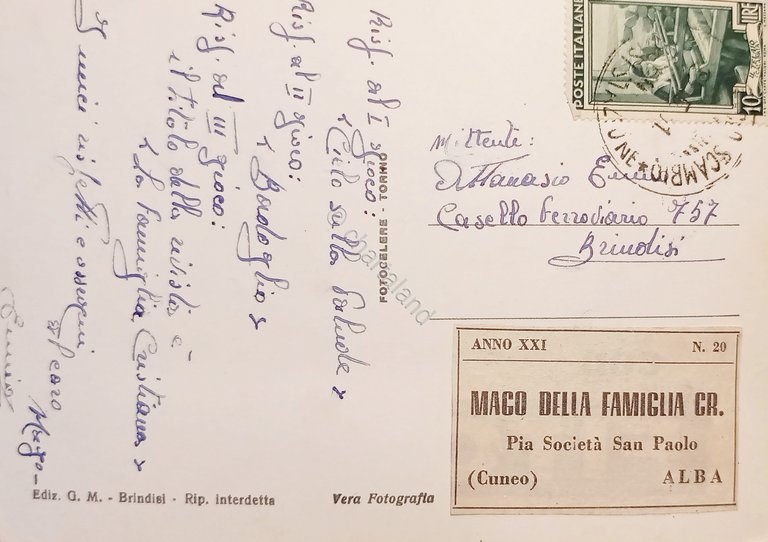 Risp. al I gioco:
« Cielo sulla Palude »
Risp. al II gioco:
« Bardoglio »
Risp. al III gioco:
il titolo della rivista è
« La Famiglia Cristiana »
rispetti e ossequi
Mago -
FOTOCELERE - TORINO
POSTE ITALIANE
LIRE
10
SCAMBIO
Mittente:
Attanasio
Casello Ferroviario 757
Brindisi
ANNO XXI N. 20
MAGO DELLA FAMIGLIA CR.
Pia Società San Paolo
(Cuneo) ALBA
Ediz. G. M. - Brindisi - Rip. interdetta
Vera Fotografia